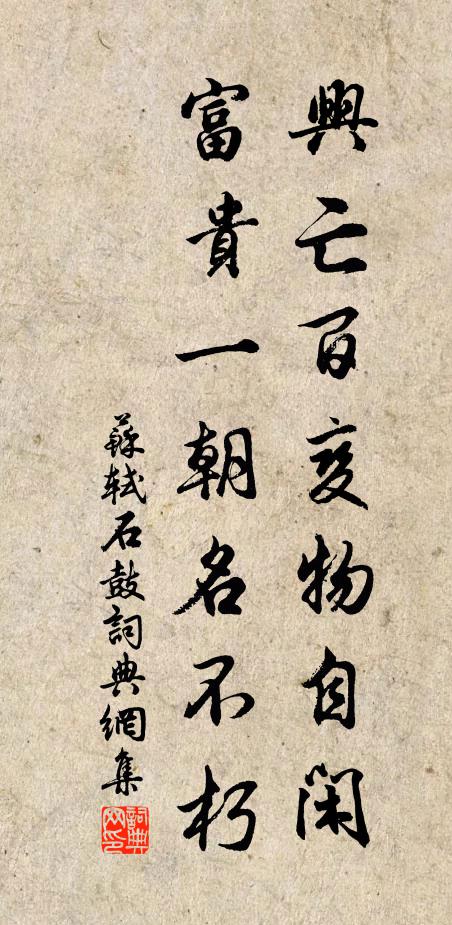 興亡百變物自閑
富貴一朝名不朽
蘇軾石鼓詞典網集
詞典網印